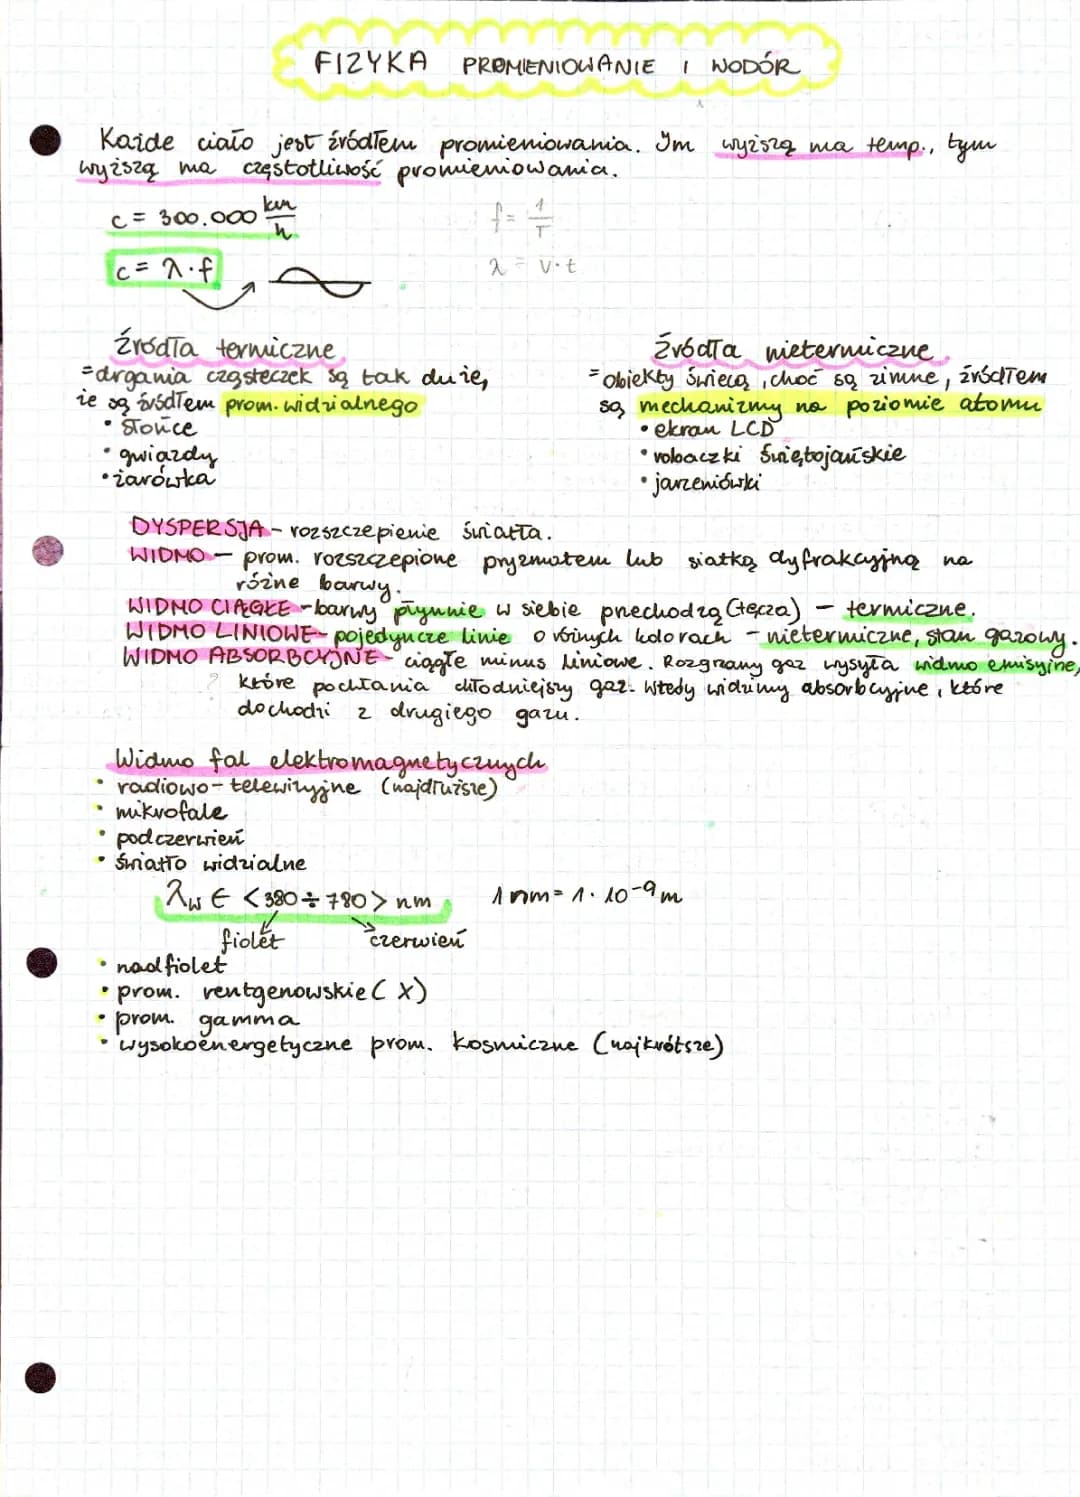 FIZYKA PROMIENIOWANIE I WODÓR
Każde ciało jest źródłem promieniowania. Im wyższą ma temp., tym
wyższą ma częstotliwość promieniowania.
c = 300.000 km/h
f = 1/T
c = λ·f
λ = v·t
Źródła termiczne
=drgania cząsteczek są tak duże,
że są źródłem prom. widzialnego
• słońce
• gwiazdy
• żarówka
Źródła nietermiczne
=obiekty świecą, choć są zimne, źródłem
są mechanizmy na poziomie atomu
• ekran LCD
• robaczki świętojańskie
• jarzeniówki
DYSPERSJA - rozszczepienie światła.
WIDMO - prom. rozszczepione pryzmatem lub siatką dyfrakcyjną na
różne barwy.
WIDMO CIĄGŁE - barwy płynnie w siebie przechodzą (tęcza) - termiczne.
WIDMO LINIOWE - pojedyncze linie o różnych kolorach - nietermiczne, stan gazowy.
WIDMO ABSORBCYJNE - ciągłe minus liniowe. Rozgrzany gaz wysyła widmo emisyjne,
? które pochłania chłodniejszy gaz. Wtedy widzimy absorbcyjne, które
dochodzi z drugiego gazu.
Widmo fal elektromagnetycznych
• radiowo-telewizyjne (najdłuższe)
• mikrofale
• podczerwień
• światło widzialne
λw ∈ <380 ÷ 780> nm 1 nm = 1·10⁻⁹ m
fiolet czerwień
• nadfiolet
• prom. rentgenowskie (X)
• prom. gamma
• wysokoenergetyczne prom. kosmiczne (najkrótsze)